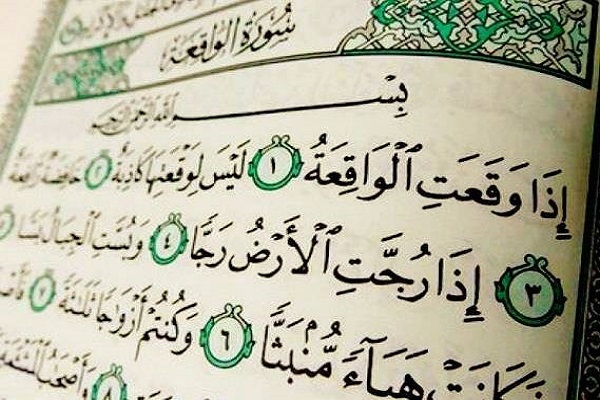 سُورَةُ الوَاقِعَة
بِسْمِ اللَّهِ الرَّحْمَٰنِ الرَّحِيمِ
إِذَا وَقَعَتِ ٱلْوَاقِعَةُ ١ لَيْسَ لِوَقْعَتِهَا كَاذِبَةٌ ٢ خَافِضَةٌ رَّافِعَةٌ
٣ إِذَا رُجَّتِ ٱلْأَرْضُ رَجًّا ٤ وَبُسَّتِ ٱلْجِبَالُ بَسًّا ٥
فَكَانَتْ هَبَآءً مُّنۢبَثًّا ٦ وَكُنتُمْ أَزْوَٰجًا ثَلَٰثَةً ٧
٨ وَأَصْحَٰبُ